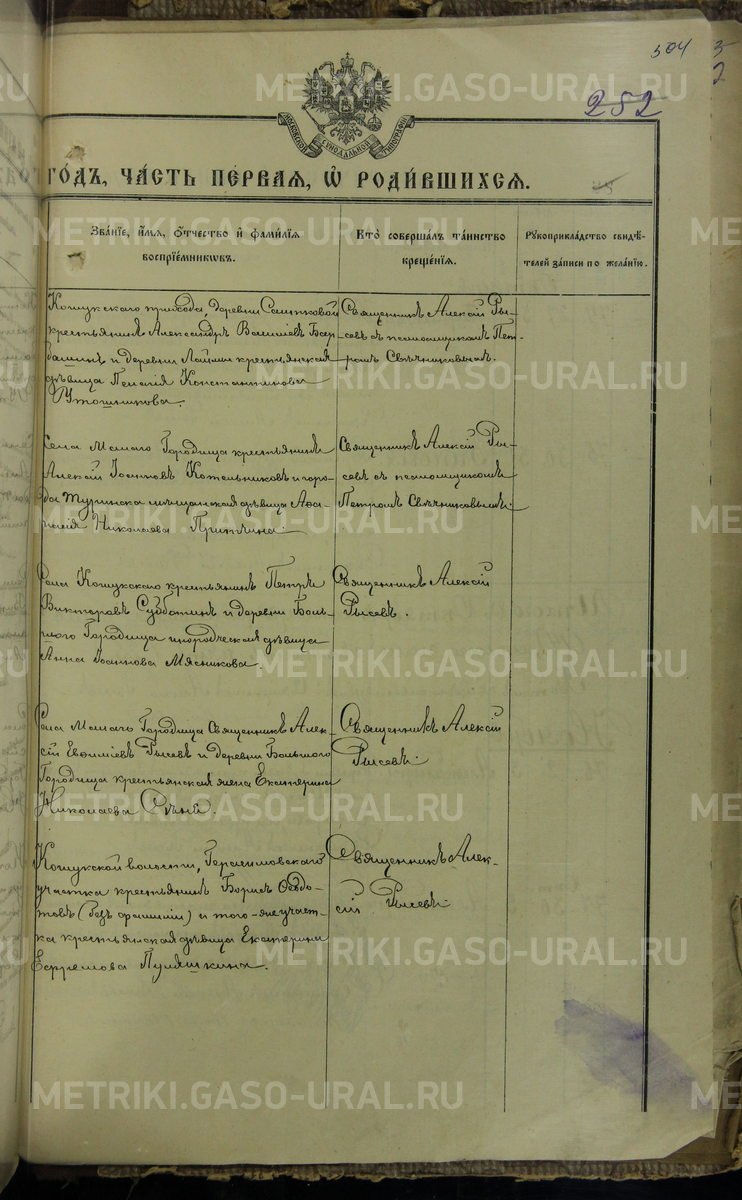 504
252
МОСКОВСКОЙ СѴНОДАЛЬНОЙ ТИПОГРАФІИ
го́дъ, ча́сть пе́рвая, ѡ҆ роди́вшихсѧ.
Зва́нїе, и҆́мѧ, ѻ҆́тчество и҆ фами́лїѧ
воспрїе́мникѡвъ.
Кто̀ соверша́лъ та́инство
креще́нїѧ.
Рꙋкоприкла́дство свидѣ́-
телей за́писи по жела́нїю.
Кошукскаго прихода, деревни
крестьянинъ Александръ Василіевъ
и деревни крестьянская
дѣвица Пелагія Константинова
Священникъ Алексій Ры-
севъ съ псаломщикомъ Пет-
ромъ Свѣчниковымъ.
Села Малаго Городища крестьянинъ
Алексій Іоанновъ Котельниковъ и горо-
да Туринска мѣщанская дѣвица Аѳа-
насія Николаева Притчина.
Священникъ Алексій Ры-
севъ съ псаломщикомъ
Петромъ Свѣчниковымъ.
Села Кошукскаго крестьянинъ Петръ
Викторовъ Субботинъ и деревни Боль-
шого Городища инородческая дѣвица
Анна Іоаннова Мясникова.
Священникъ Алексій
Рысевъ.
Села Малаго Городища Священникъ Алек-
сій Евѳиміевъ Рысевъ и деревни Большого
Городища крестьянская жена Екатерина
Николаева
Священникъ Алексій
Рысевъ.
Кошукской волости, Герасимовскаго
участка крестьянинъ Борисъ Ѳедо-
товъ (безъ фамиліи) и того-же участ-
ка крестьянская дѣвица Екатерина
Ефремова Пуляшкина.
Священникъ Алек-
сій Рысевъ
METRIKI.GASO-URAL.RU